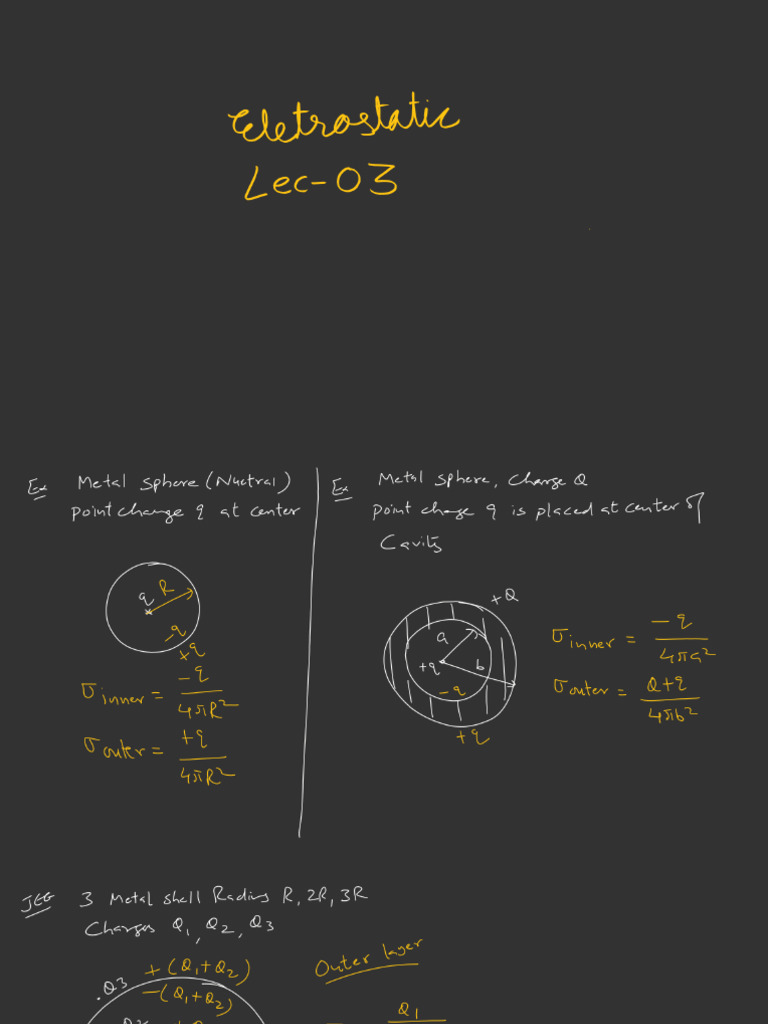 Eletrostatic
Lec-03
Ex Metal sphere (Nuetral)
point change q at center
q R
-q
+q
σinner = -q / 4πR²
σouter = +q / 4πR²
Ex Metal sphere, charge Q
point charge q is placed at center of
Cavity
+Q
a
+q b
-q
+q
σinner = -q / 4πa²
σouter = Q+q / 4πb²
JEE 3 Metal shell Radius R, 2R, 3R
Charges Q₁, Q₂, Q₃
Outer layer
Q3 +(Q₁+Q₂)
-(Q₁+Q₂)
Q1